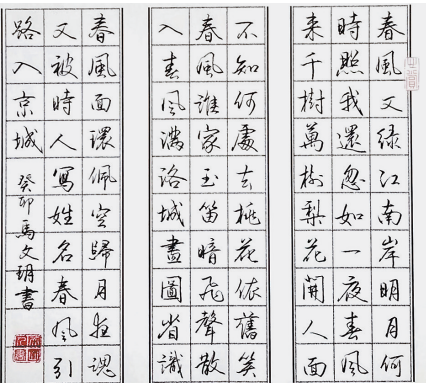 春風又綠江南岸明月何
時照我還忽如一夜春風
来千樹萬樹梨花開人面
不知何處去桃花依舊笑
春風誰家玉笛暗飛聲散
入春風滿洛城畫圖省識
春風面環佩空歸月夜魂
又被時人寫姓名春風引
路入京城
癸卯馬文玥書